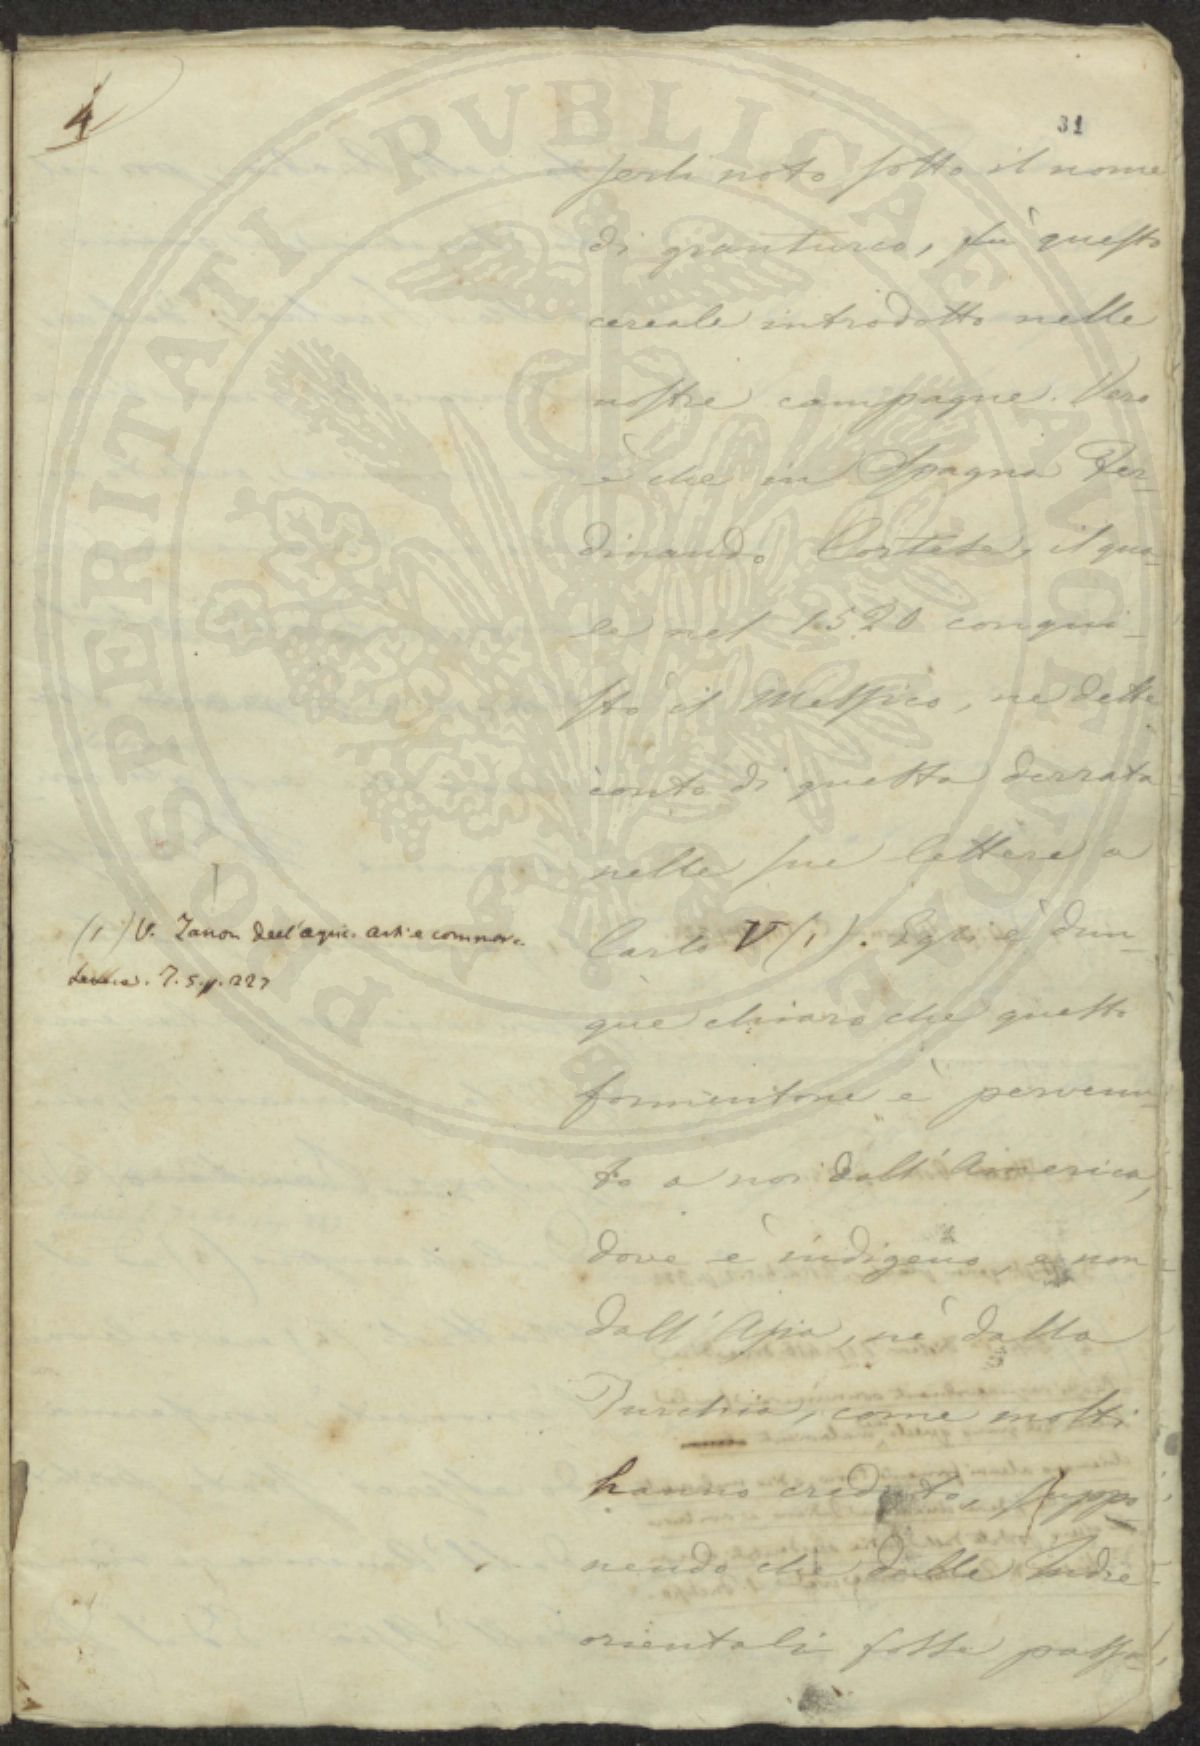 4
31
serli noto sotto il nome
di granturco, fù questo
cereale introdotto nelle
nostre campagne. Vero
è che in Spagna Fer-
dinando Cortese, il qua-
le nel 1520 conqui-
stò il Messico, ne dette
conto di questa derrata
nelle sue lettere a
Carlo V (1). Egli è dun-
que chiaro che questo
formentone è pervenu-
to a noi dall'America,
dove è indigeno, e non
dall'Asia, nè dalla
Turchia, come molti
hanno creduto, suppo
nendo che dalle Indie
orientali fosse passa-
(1) V. Zanon dell'agric. arti e commer.
Lettere. T. 5. p. 227
PROSPERITATI PVBLICAE AVGENDAE